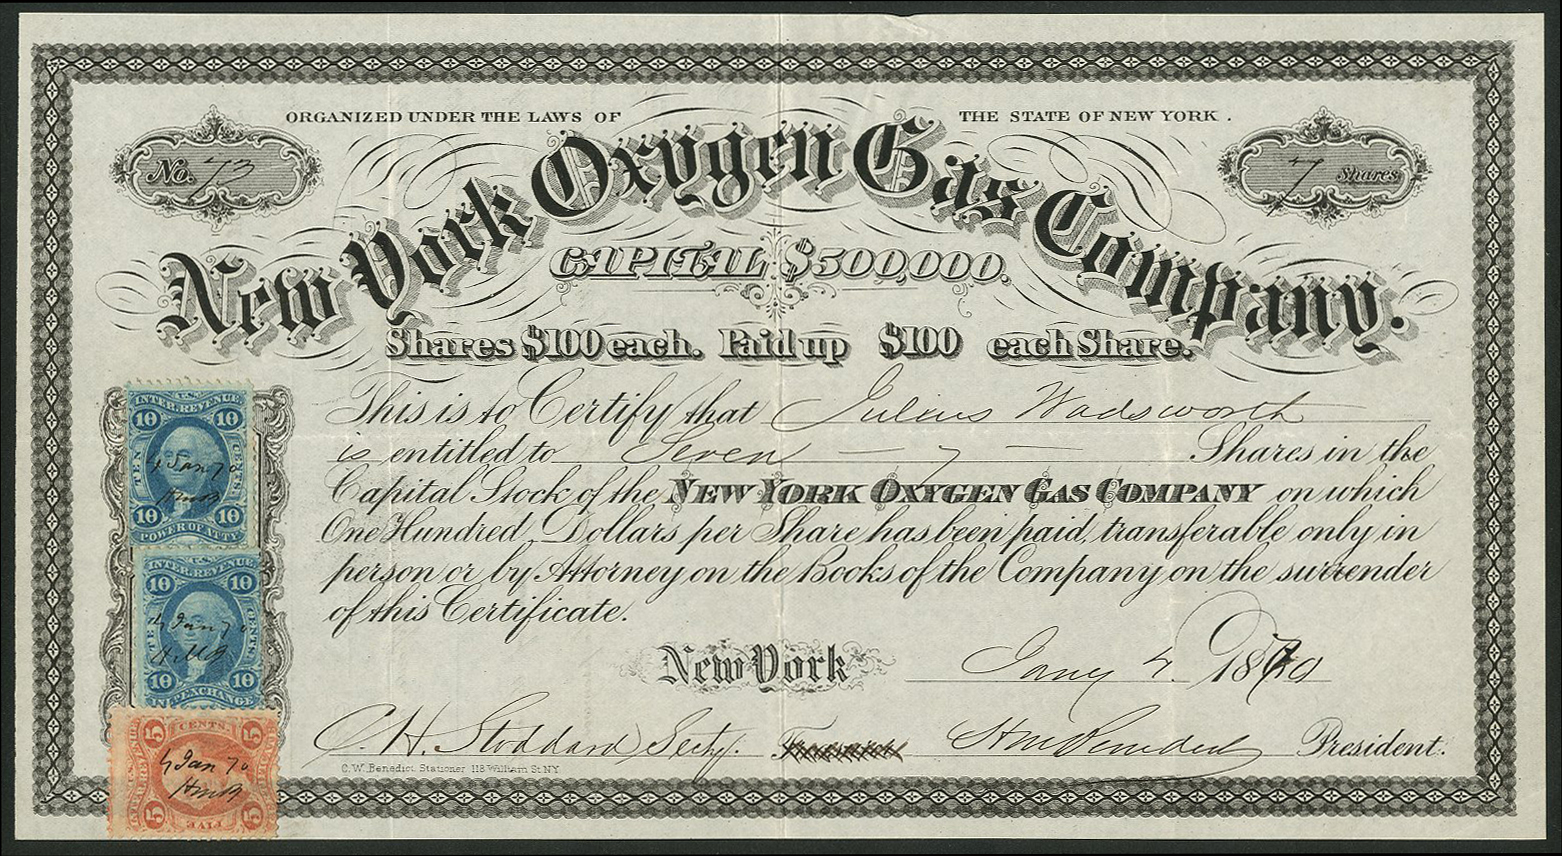 ORGANIZED UNDER THE LAWS OF THE STATE OF NEW YORK.
No. 73
7 Shares
New York Oxygen Gas Company.
CAPITAL $500,000.
Shares $100 each. Paid up $100 each Share.
This is to Certify that Julius Wadsworth
is entitled to Seven — 7 — Shares in the
Capital Stock of the NEW YORK OXYGEN GAS COMPANY on which
One Hundred Dollars per Share has been paid, transferable only in
person or by Attorney on the Books of the Company on the surrender
of this Certificate.
New York Jany 4 1870
C. H. Stoddard Secty. President.
C. W. Benedict Stationer 118 William St. NY
U.S.
INTER. REVENUE
10 10
TEN CENTS
4 Jan 70
HMB
10 10
POWER OF AT'TY
U.S.
INTER. REVENUE
10 10
TEN CENTS
4 Jan 70
HMB
10 10
INL. EXCHANGE
5 CENTS 5
4 Jan 70
HMB
5 FIVE 5